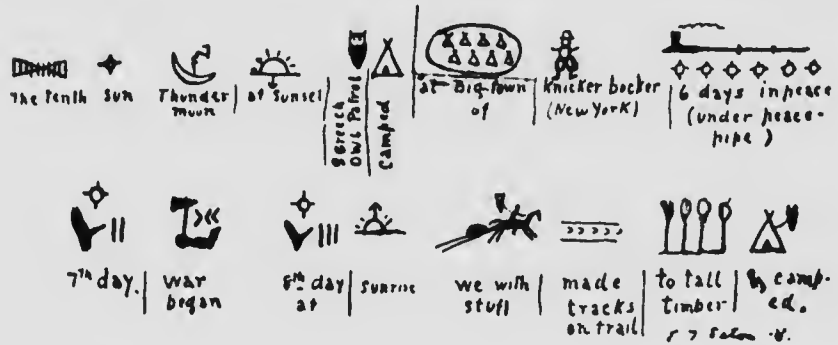 The Tenth Sun
Thunder
moon
at Sunset
Screech
Owl Patrol
Camped
at Big Town
of
Knickerbocker
(New York)
6 days in peace
(under peace-
pipe)
7th day.
war
began
8th day
at
Sunrise
we with
stuff
made
tracks
on trail
to tall
timber
& camp-
ed.